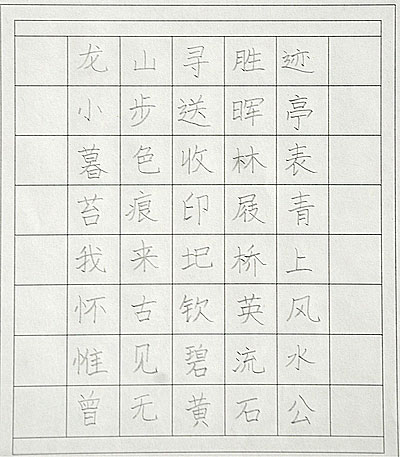 龙山寻胜迹
小步送晖亭
暮色收林表
苔痕印屐青
我来圯桥上
怀古钦英风
惟见碧流水
曾无黄石公